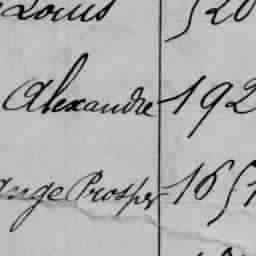 Louis 520
Alexandre 192
George Prosper 1651